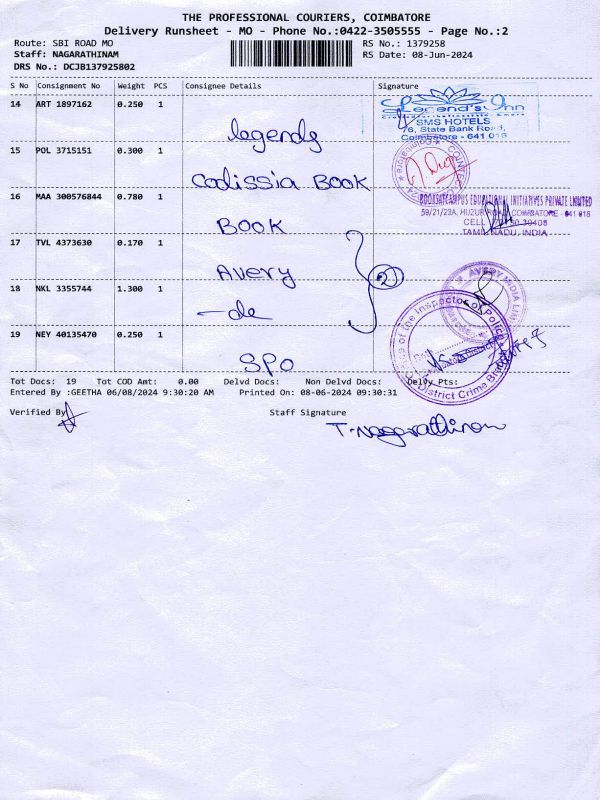 THE PROFESSIONAL COURIERS, COIMBATORE
Delivery Runsheet - MO - Phone No.:0422-3505555 - Page No.:2
Route: SBI ROAD MO
RS No.: 1379258
Staff: NAGARATHINAM
RS Date: 08-Jun-2024
DRS No.: DCJB137925802
S No Consignment No Weight PCS Consignee Details Signature
14 ART 1897162 0.250 1
legends
Legend's Inn
SMS HOTELS
76, State Bank Road,
Coimbatore - 641 018
15 POL 3715151 0.300 1
Codissia BOOK
16 MAA 300576844 0.780 1
BOOK
BOOKSATCAMPUS EDUCATIONAL INITIATIVES PRIVATE LIMITED
59/21/23A, HUZUR ROAD, COIMBATORE - 641 018
TAMIL NADU, INDIA.
17 TVL 4373630 0.170 1
Avery
2
AVERY INDIA LIM
18 NKL 3355744 1.300 1
-do
19 NEY 40135470 0.250 1
SPO
of the Inspector of Police
District Crime
Tot Docs: 19 Tot COD Amt: 0.00 Delvd Docs: Non Delvd Docs: Delvy Pts:
Entered By :GEETHA 06/08/2024 9:30:20 AM Printed On: 08-06-2024 09:30:31
Verified By
Staff Signature
T. Nagarathinam